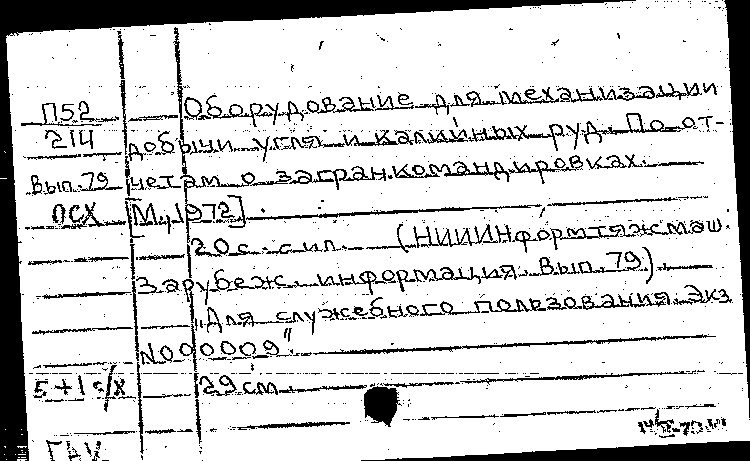 П52 Оборудование для механизации
214 добычи угля и калийных руд. По от-
Вып.79 четам о загран.командировках.
ОСХ [М.,1972].
20с. с ил. (НИИИНформтяжмаш.
Зарубеж. информация. Вып. 79).
"Для служебного пользования. Экз
№000009".
5+1 с/х 29 см.